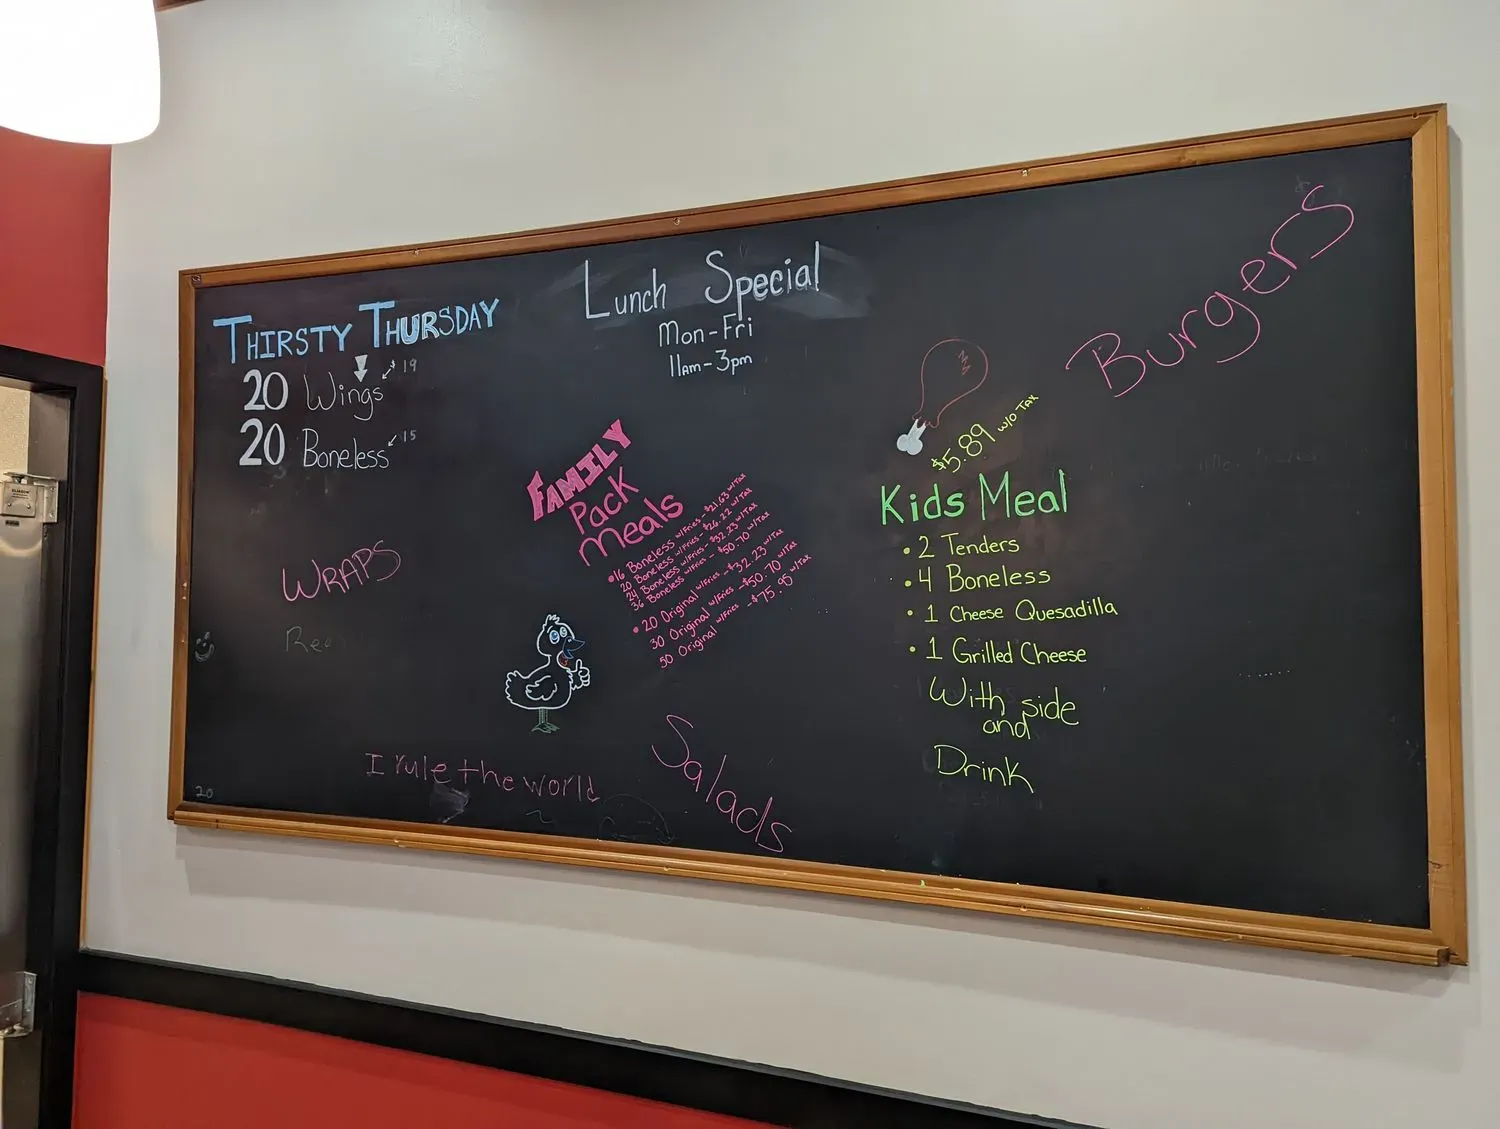 THIRSTY THURSDAY
20 Wings $19
20 Boneless 15
Lunch Special
Mon-Fri
11am-3pm
Burgers
FAMILY
Pack
Meals
• 16 Boneless w/Fries - $21.63 w/Tax
20 Boneless w/Fries - $26.22 w/Tax
24 Boneless w/Fries - $32.23 w/Tax
36 Boneless w/Fries - $50.70 w/Tax
• 20 Original w/Fries - $32.23 w/Tax
30 Original w/Fries - $50.70 w/Tax
50 Original w/Fries - $75.95 w/Tax
$5.89 w/o Tax
Kids Meal
• 2 Tenders
• 4 Boneless
• 1 Cheese Quesadilla
• 1 Grilled Cheese
With side
and
Drink
WRAPS
I rule the world
Salads
20